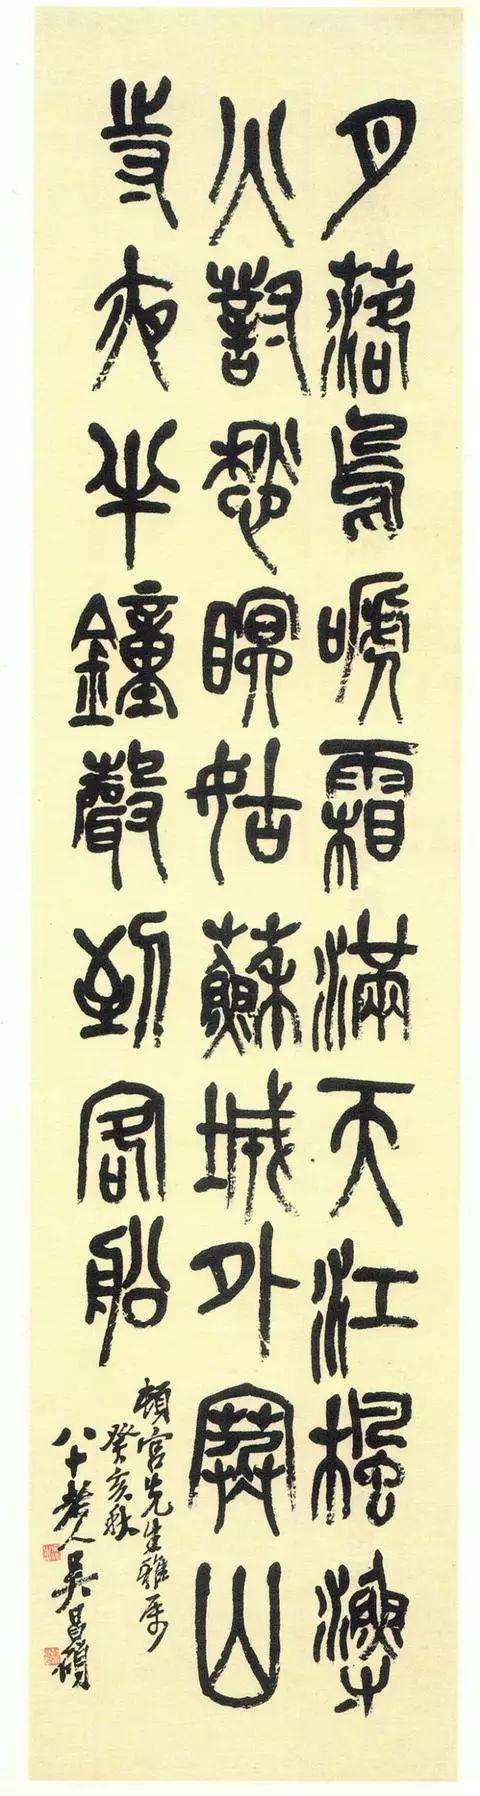 月落烏嗁霜滿天江楓漁
火對愁眠姑蘇城外寒山
寺夜半鐘聲到客船
頓宮先生雅屬
癸亥秋
八十老人吳昌碩